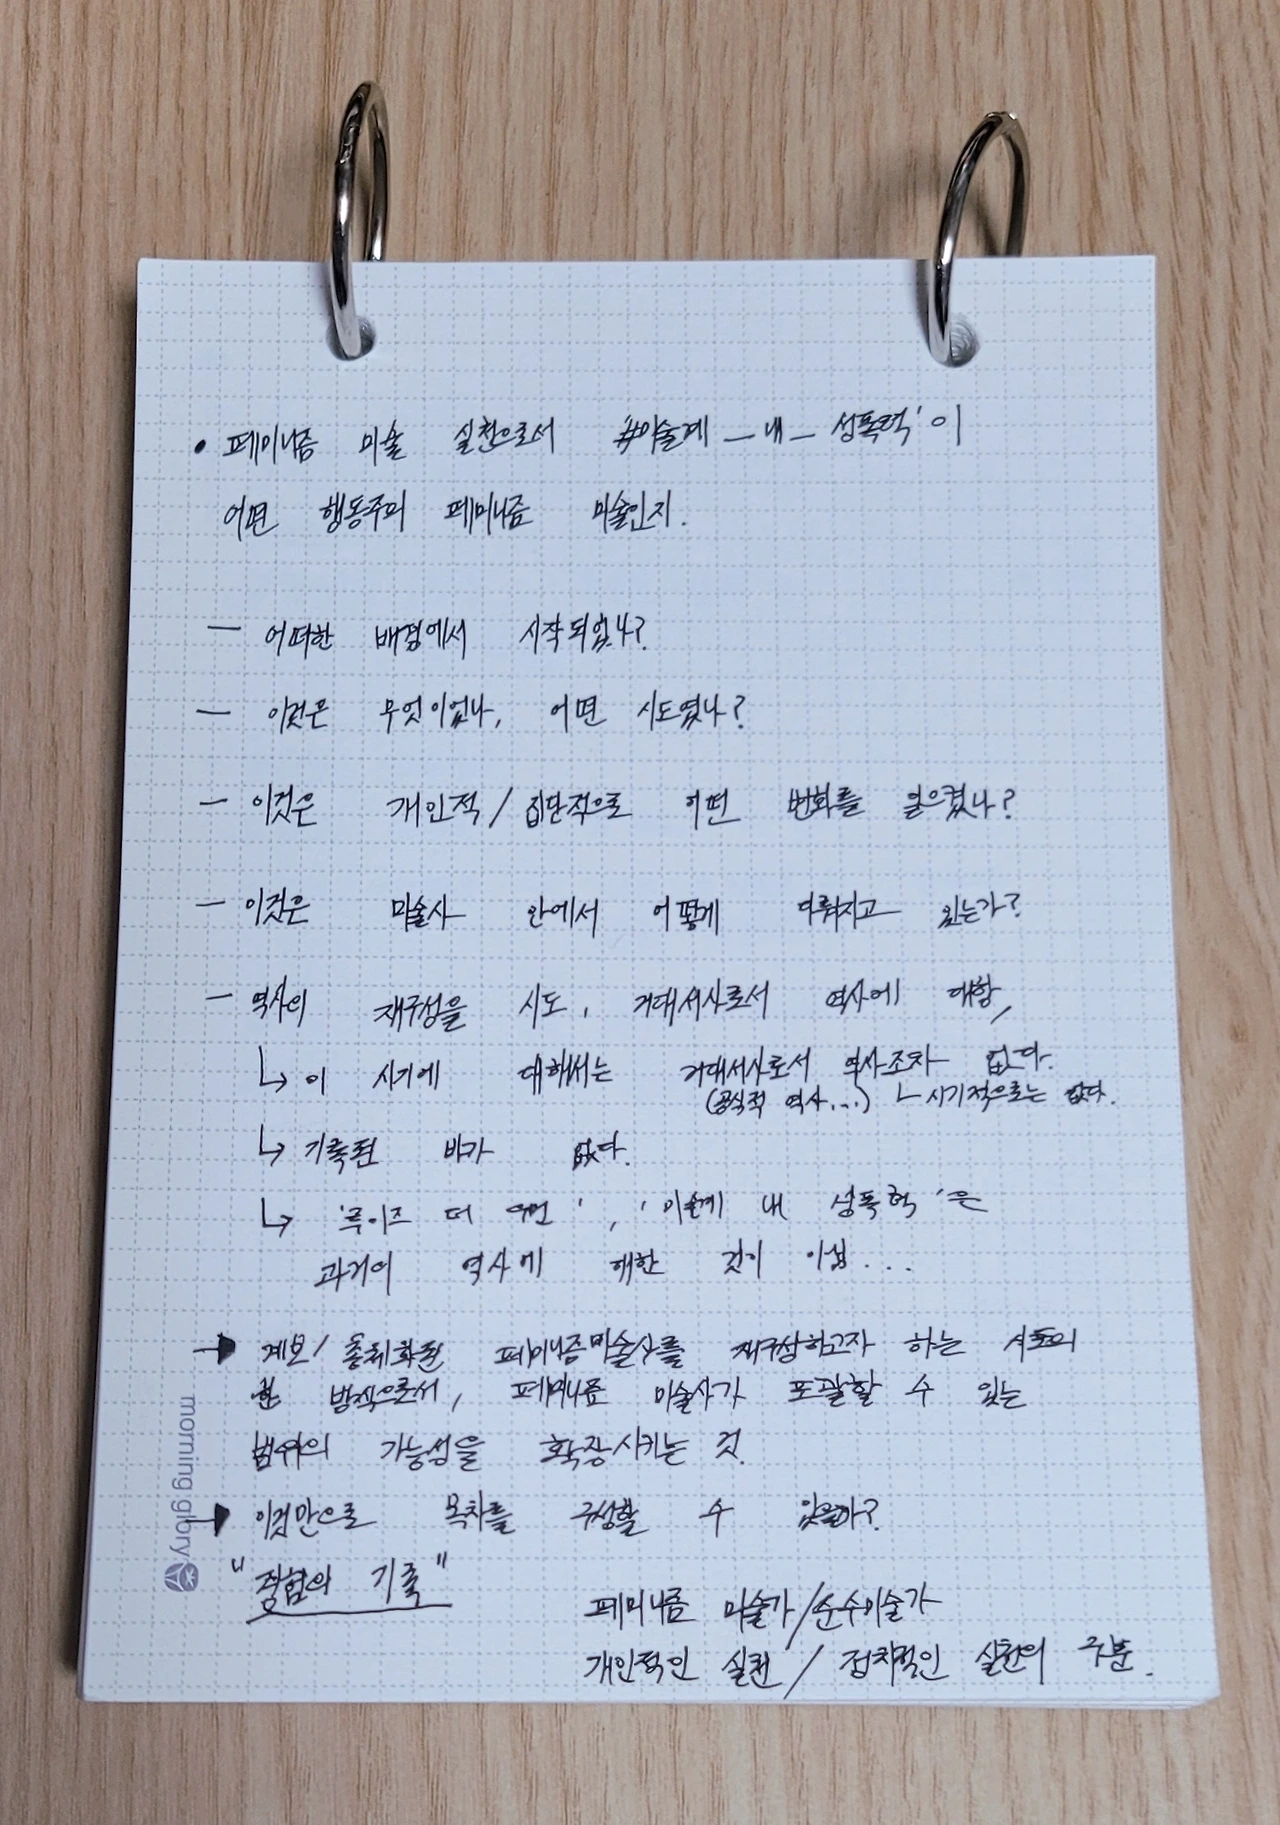 • 페미니즘 미술 실천으로서 #미술계_내_성폭력'이
어떤 행동주의 페미니즘 미술인지.
— 어떠한 배경에서 시작되었나?
— 이것은 무엇이었나, 어떤 시도였나?
— 이것은 개인적/집단적으로 어떤 변화를 일으켰나?
— 이것은 미술사 안에서 어떻게 다뤄지고 있는가?
— 역사의 재구성을 시도, 거대서사로서 역사에 대항,
↳ 이 시기에 대해서는 거대서사로서 역사조차 없다.
(공식적 역사...) ㄴ시기적으로는 없다.
↳ 기록된 바가 없다.
↳ '루이즈 더 우먼', '미술계 내 성폭력'은
과거의 역사에 대한 것이 아님...
→ 계보/총체화된 페미니즘미술사를 재구상하고자 하는 시도의
한 방식으로서, 페미니즘 미술사가 포괄할 수 있는
범위의 가능성을 확장시키는 것.
→ 이것만으로 목차를 구성할 수 있을까?
morning glory
"경험의 기록"
페미니즘 미술가/순수미술가
개인적인 실천/정치적인 실천의 구분.